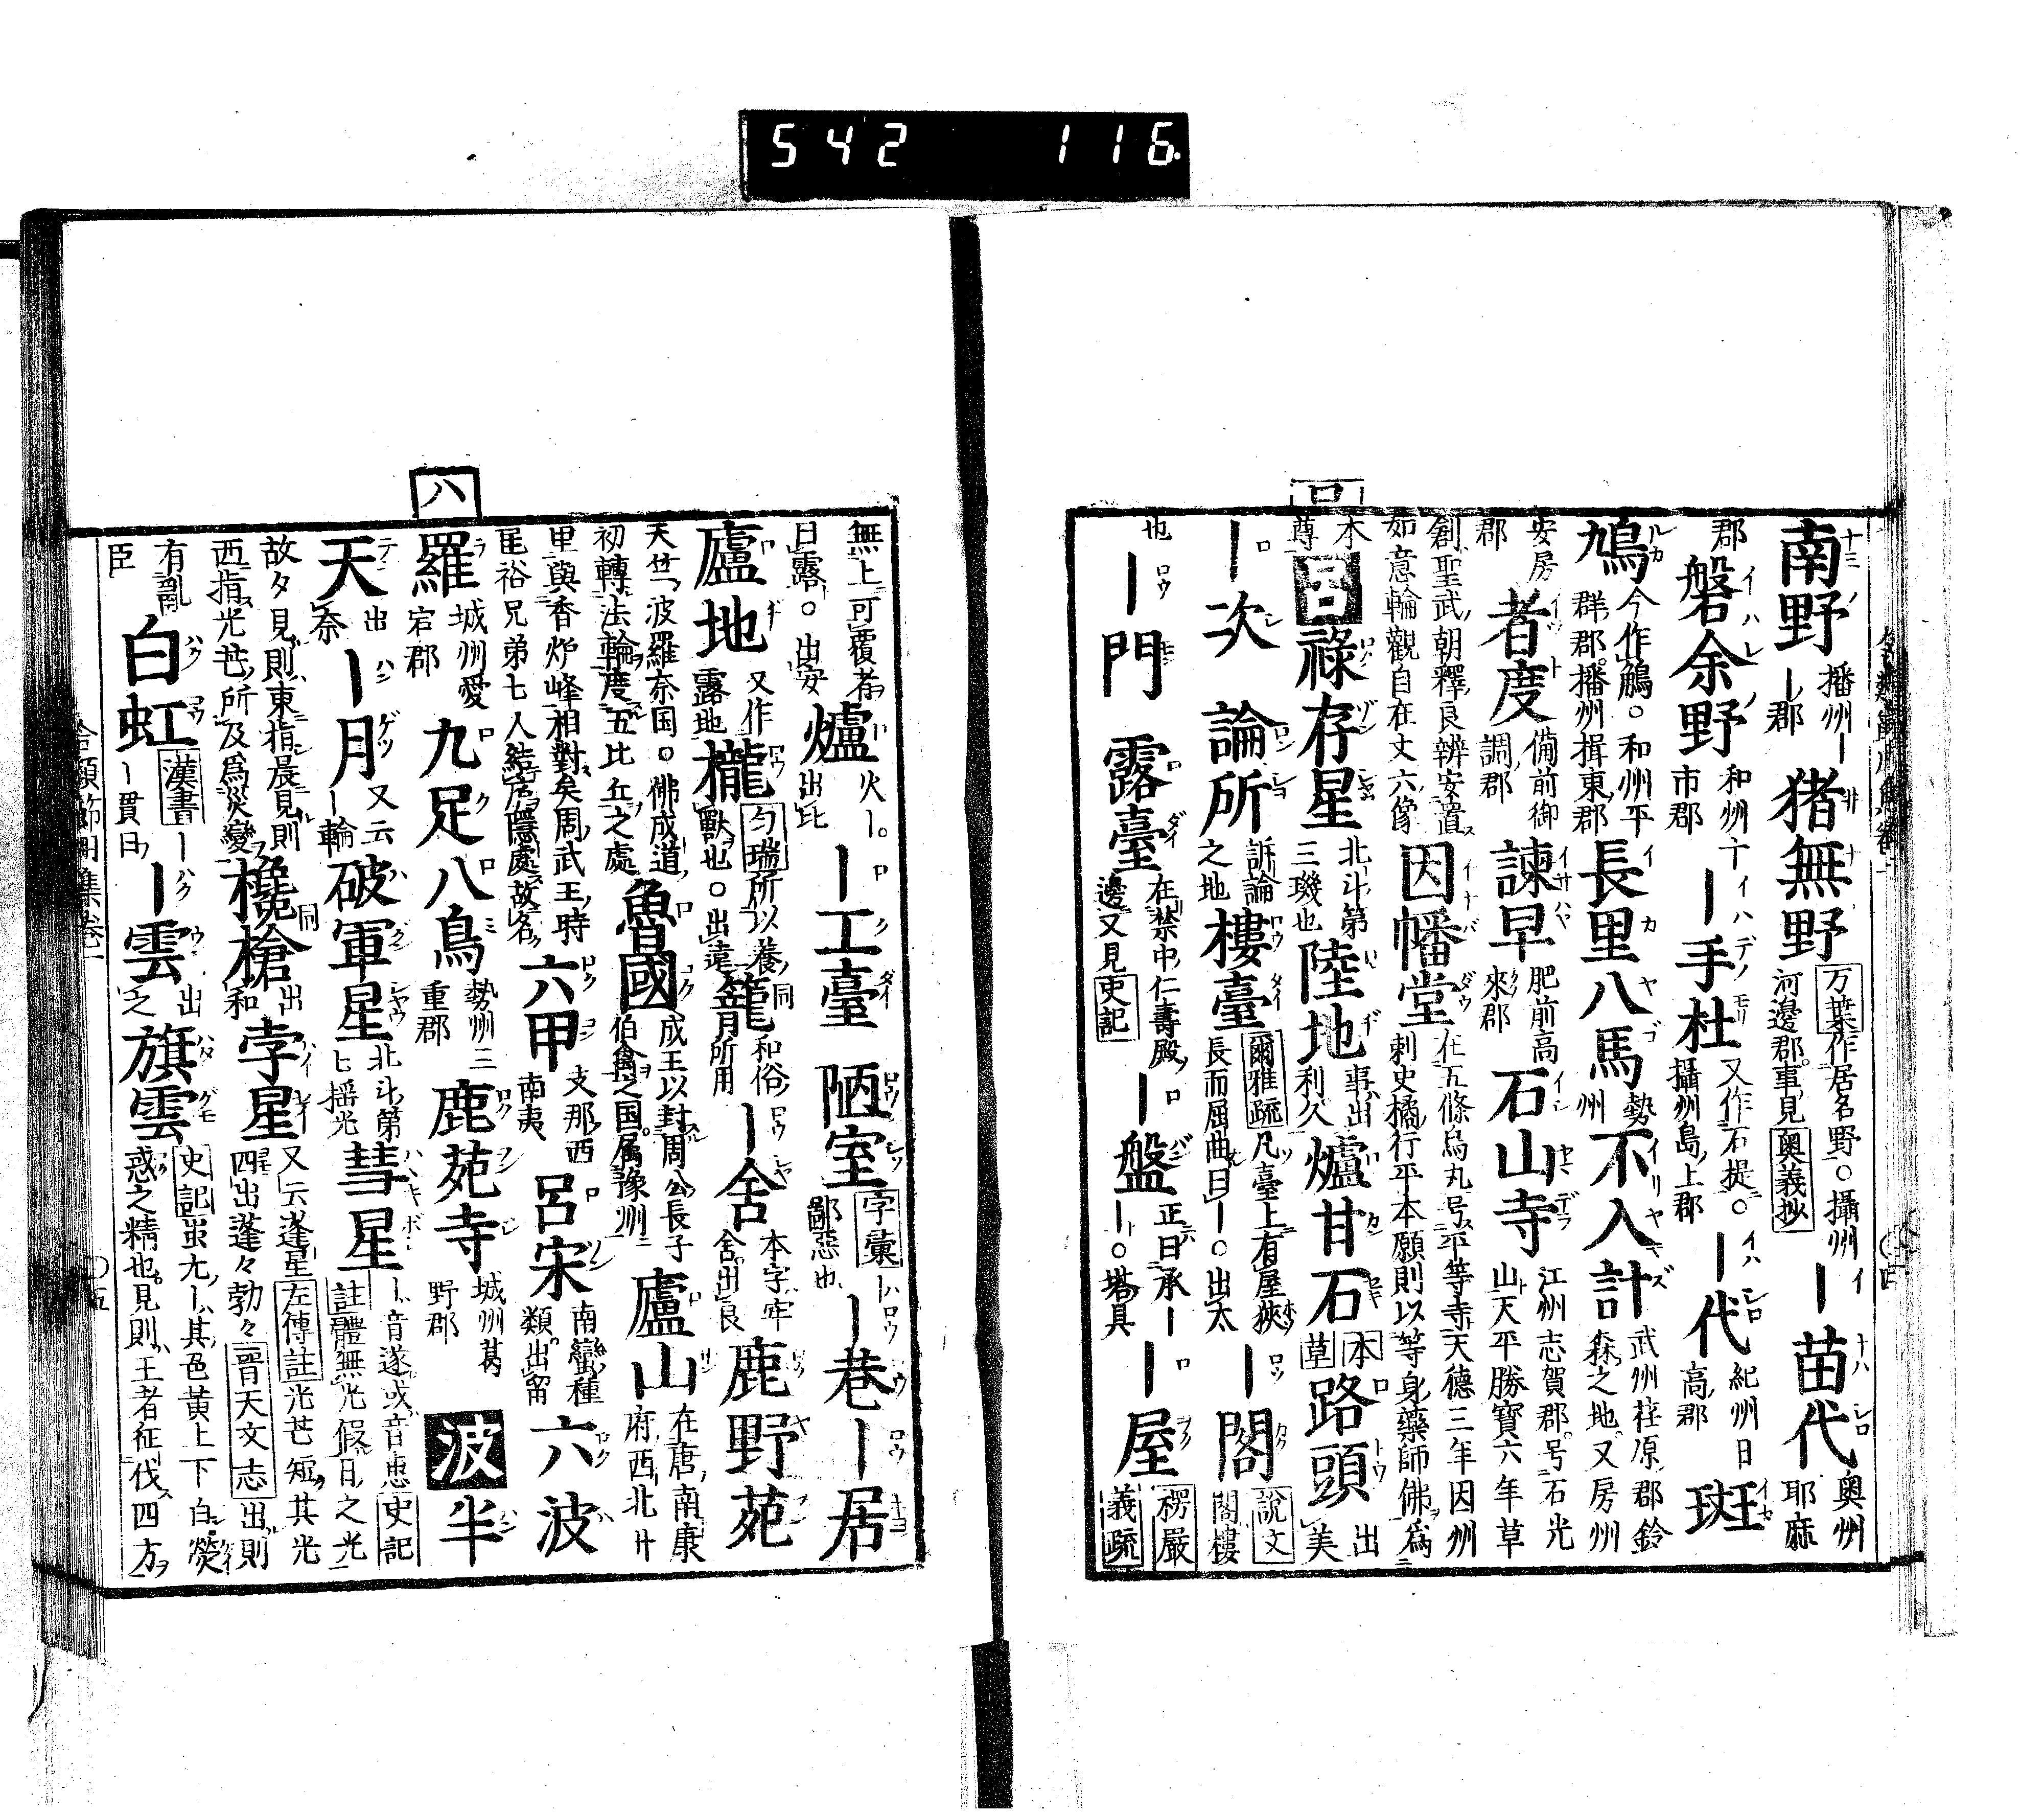 542 116
南野 播州ー郡 猪無野 万葉作居名野○攝州河邊郡事見奥義抄 ー苗代 奥州耶麻
郡 磐余野 和州十市郡 ー手杜 又作石提○攝州島上郡 ー代 紀州日高郡 斑
鳩 今作鵤○和州平群郡播州揖東郡 長里八馬 勢州 不入計 武州荏原郡鈴森之地又房州
安房郡 者度 備前御調郡 諫早 肥前高來郡 石山寺 江州志賀郡号石光山天平勝寶六年草
創聖武朝釋良辨安置如意輪觀自在丈六像 因幡堂 在五條烏丸号平等寺天德三年因州刺史橘行平本願則以等身藥師佛爲
本尊 呂 祿存星 北斗第三璣也 陸地 事出利久 爐甘石 本草 路頭 出美
ー次 論所 訴論之地 樓臺 爾雅疏凡臺上有屋狹長而屈曲曰ー○出太 ー閣 說文閣樓
也 ー門 露臺 在禁中仁壽殿邊又見史記 ー盤 正曰承ー○塔具 ー屋 楞嚴義疏
ロ
無上可覆者曰露○出安 爐 火ー○出比 ー工臺 陋室 字彙鄙惡也 ー巷 ー居
廬地 又作露地 櫳 匀瑞所以養獸也○出遠 籠 同和俗所用 ー舍 本字牢舍出良 鹿野苑
天竺波羅奈国○佛成道初轉法輪度五比丘之處 魯國 成王以封周公長子伯禽之国属豫州 廬山 在唐南康府西北廿
里與香炉峰相對矣周武王時匡裕兄弟七人結廬隱處故名 六甲 支那西南夷 呂宋 南蠻種類出留 六波
羅 城州愛宕郡 九足八鳥 勢州三重郡 鹿苑寺 城州葛野郡 波 半
天 出奈 ー月 又云ー輪 破軍星 北斗第七揺光 彗星 ー音遂或音恵史記註體無光假日之光
故夕見則東指晨見則西指光芒所及爲災變 欃槍 同出和 孛星 又云蓬星左傳註光芒短其光四出蓬々勃々晉天文志出則
有亂臣 白虹 漢書ー貫日 ー雲 出之 旗雲 史記蚩尤ー其色黃上下白熒惑之精也見則王者征伐四方
ハ
合類節用集巻一
○五